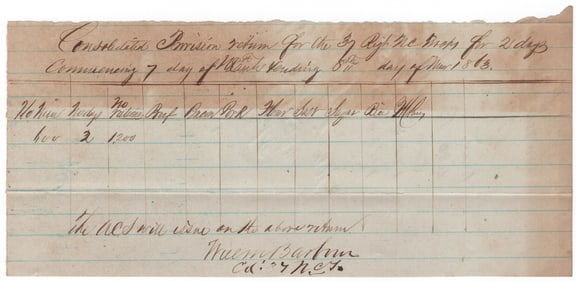 Consolidated Provision return for the 37 Regt N.C. Troops for 2 days
Commencing 7 day of March & ending 8th day of Mar 1863.
No Men No Days No Rations Beef Bacon Pork Flour Salt Sugar Rice
600 2 1200
The ACS will issue on the above return
Wm M Barbour
Col. 37 N.C.T.